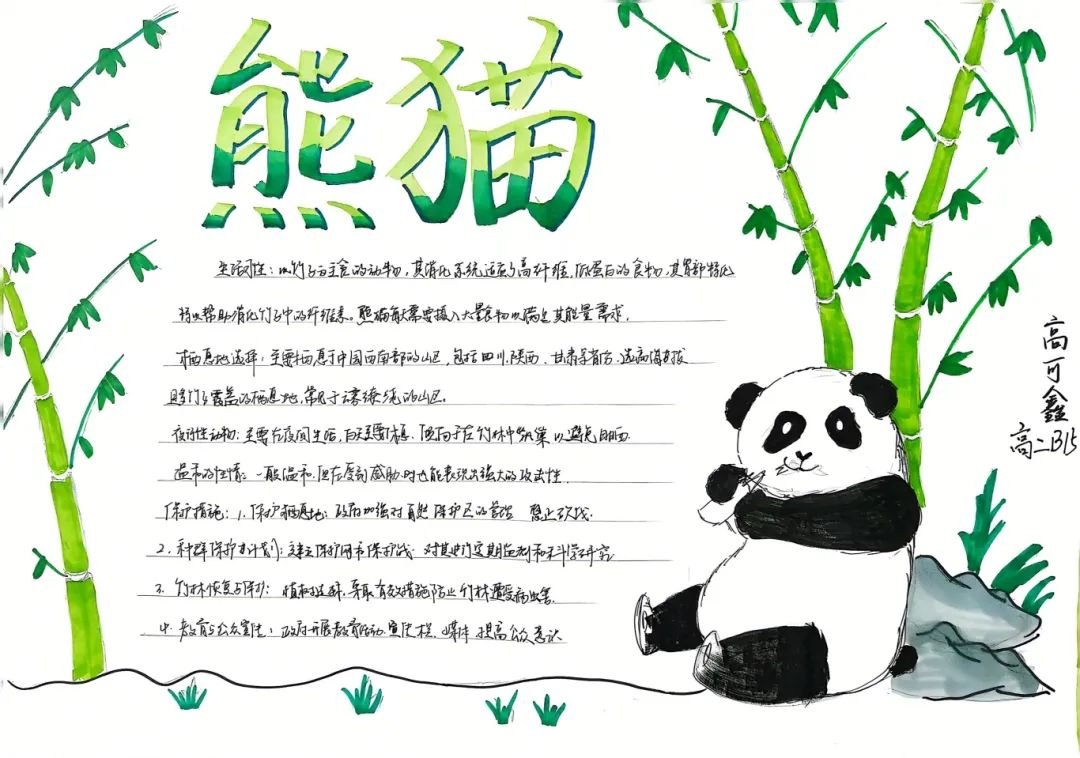 熊猫
生活习性：以竹子为主食的动物，其消化系统适应了高纤维、低蛋白的食物，其胃部特化
帮助消化竹子中的纤维素。熊猫每天需要摄入大量食物以满足其能量需求．
栖息地选择：主要栖息于中国西南部的山区，包括四川、陕西、甘肃等省份．选高海拔
竹子覆盖的栖息地，常见于的山区。
夜行性动物：主要在夜间生活，白天主要休息．倾向于在竹林中以避免
温和的性情：一般温和，但在受到威胁时也能表现出强大的攻击性．
保护措施：1．保护栖息地：政府加强对自然保护区的管理 禁止砍伐．
2．种群保护计划：建立保护网和保护站 对其进行定期监测和科学研究
3．竹林恢复与保护：植树造林，采取有效措施防止竹林遭受病虫害．
4．教育与公众宣传：政府开展教育活动、宣传栏、媒体 提高公众意识
高可鑫
高二B15